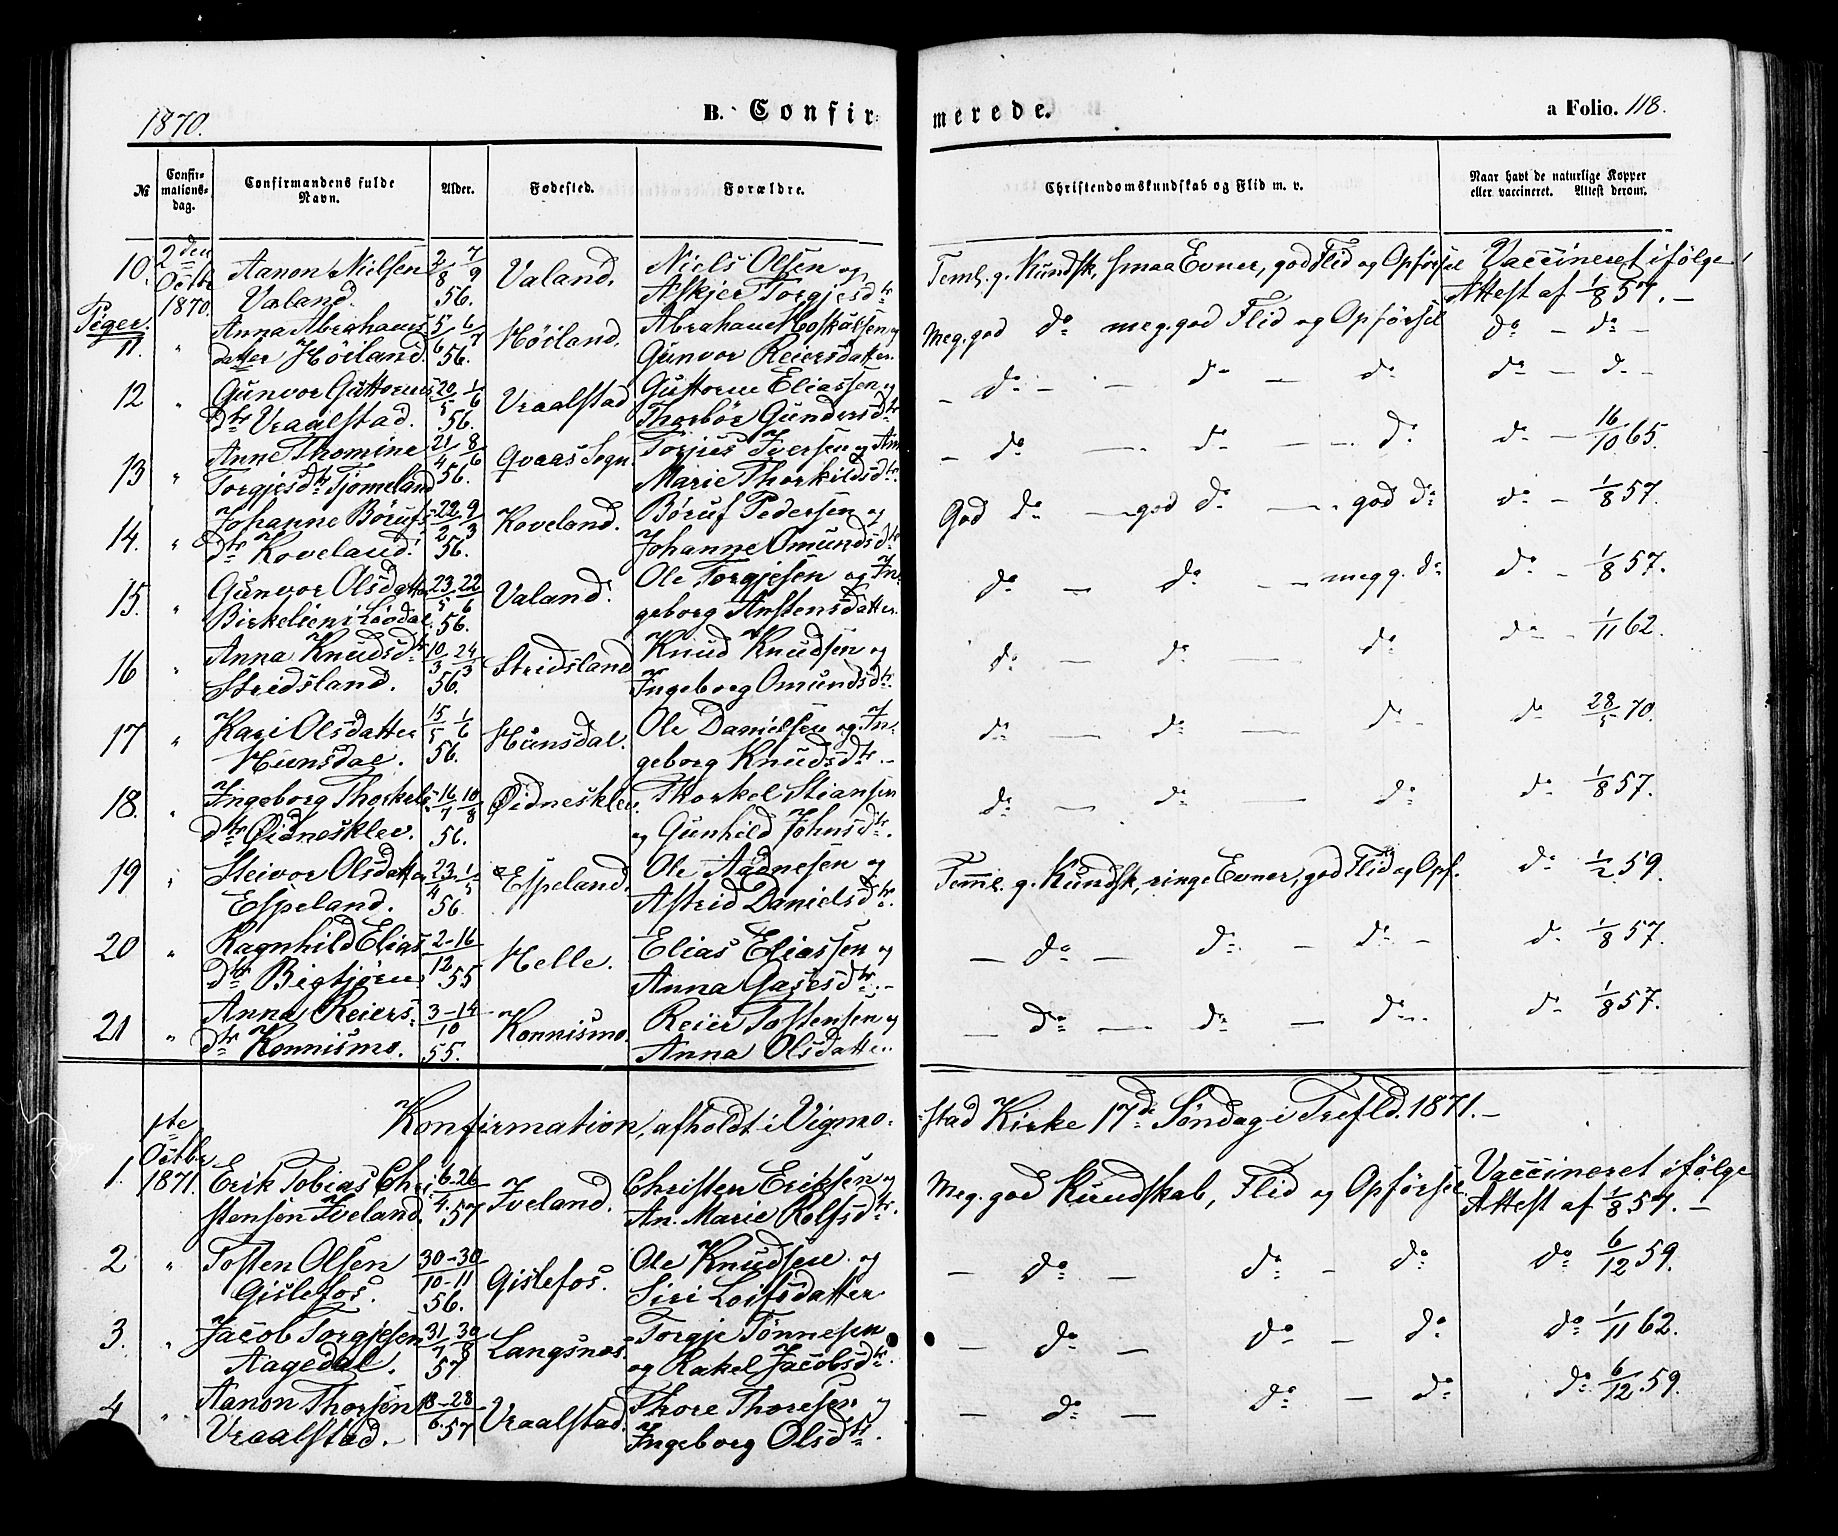 1870.
B. Confir-
merede.
a Folio. 118.
№
Confir-
mations-
dag.
Confirmandens fulde
Navn.
Alder.
Fødested.
Forældre.
Christendomskundskab og Flid m. v.
Naar havt de naturlige Kopper
eller vaccineret. Attest derom.
10. 2den Octbr 1870. Aanon Nielsen 2/8 - 7/9 Valand. Niels Olsen og Teml. g. Kundsk, smaa Evner, god Flid og Opførsel Vaccineret ifølge
Valand. 56. Askjer Torgjesdtr Attest af 1/8 57. -
Piger.
11. " Anna Abrahams 5/6 - 6/7 Høiland. Abraham Hoskulsen og Meg. god do meg. god Flid og Opførsel do - do -
datter Høiland. 56. Gunvor Reiersdatter.
12 " Gunvor Guttorms 20/5 - 1/6 Vraalstad Guttorm Eliassen og - do - - do - do do - do -
dtr Vraalstad. 56. Thorbør Gundersdtr
13 " Anne Thomine 21/4 - 8/6 Qvaas Sogn. Torjus Iversen og Ann - do - do - - do do - 16/10 65.
Torgjesdtr Tjomeland 56. Marie Thorkildsdtr.
14. " Johanne Børufs- 22/2 - 9/3 Koveland. Børuf Pedersen og God do - god do - god do do - 1/8 57.
dtr Koveland. 56. Johanne Omundsdtr
15. " Gunvor Olsdatter 23/5 - 22/6 Valand. Ole Torgjesen og In- do - do - - meg g. do do - 1/8 57.
Birkelien i Løvdal. 56. geborg Anstensdatter.
16 " Anna Knudsdtr 10/3 - 24/3 Stridsland Knud Knudsen og do - do - do do - 1/11 62.
Stridsland. 56. Ingeborg Omundsdtr.
17 " Kari Olsdatter 15/5 - 1/6 Hunsdal. Ole Danielsen og In- do - do - do - do 28/5 70.
Hunsdal. 56. geborg Knudsdtr -
18. " Ingeborg Thorkels- 16/7 - 10/8 Øidnesklev. Thorkel Stiansen do - do - do do 1/8 57.
dtr Øidnesklev. 56. og Gunhild Johnsdtr.
19 " Steivor Olsdatter 23/4 - 1/5 Espeland. Ole Aadnesen og Teml. g. Kundsk, ringe Evner, god Flid og Opf. do 1/2 59.
Espeland. 56. Astrid Danielsdtr.
20 " Ragnhild Elias 2-16/12 Helle. Elias Eliassen og - do - do - do - do 1/8 57.
dtr Bigtjørn 55 Anna Gasesdtr. -
21 " Anna Reiers- 3-14/10 Konnismo. Reier Tostensen og - do - do - do - do 1/8 57.
dtr Konnismo. 55. Anna Olsdatter.
Konfirmation, afholdt i Vigmo-
stad Kirke 17de Søndag i Trefld. 1871. -
1. 1ste Octbr 1871. Erik Tobias Chri- 6-26/4 Iveland. Christen Eriksen og Meg. god Kundskab, Flid og Opførsel. Vaccineret ifølge
stensen Iveland. 57 An. Marie Rolfsdtr. Attest af 1/8 57. -
2 " Tosten Olsen 30-30/10-11 Gislefos. Ole Knudsen og - do - do - do do 6/12 59.
Gislefos. 56. Siri Loifsdatter
3. " Jacob Torgjesen 31/7 - 30/8 Langsnæs. Torgje Tønnesen - do - do - do do 1/11 62.
Aagedal. 57. og Rakel Jacobsdtr.
4 " Aanon Thorsen 18-28/6 Vraalstad. Thore Thoresen og - do - do - do do 6/12 59.
Vraalstad. - 57 Ingeborg Olsdtr.